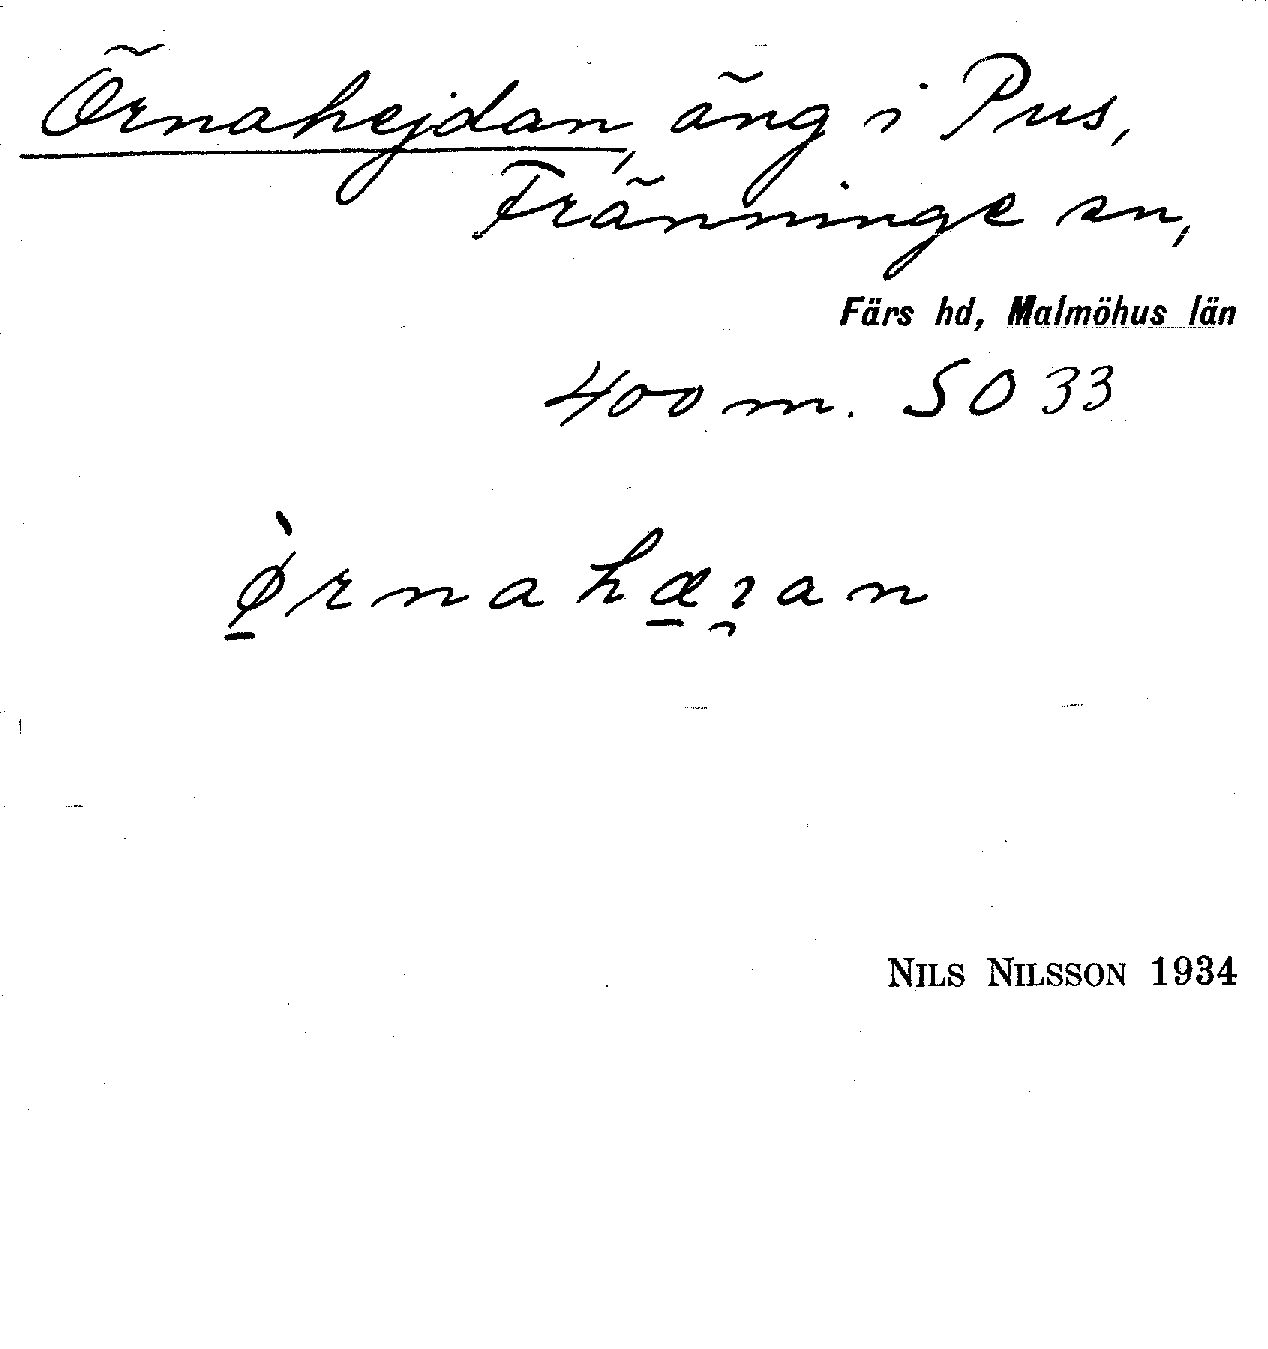 Örnahejdan, äng i Pus,
Fränninge sn,
Färs hd, Malmöhus län
400 m. SO 33
NILS NILSSON 1934